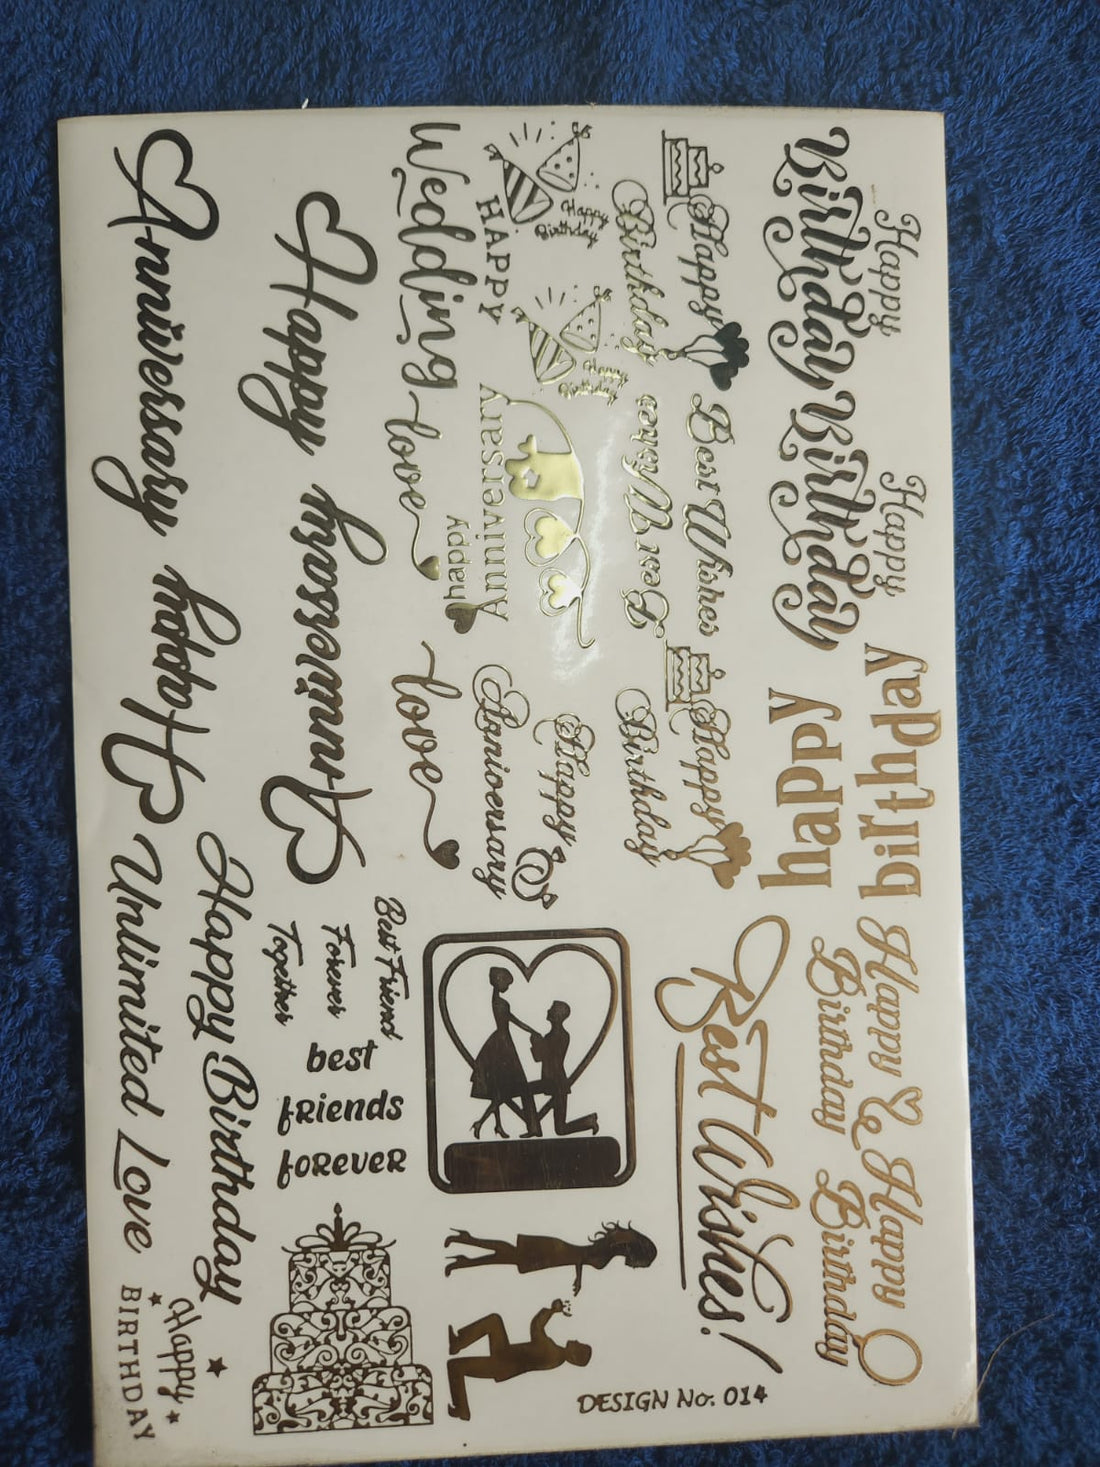 Happy
Birthday
Happy
Birthday
happy
birthday
Happy
Birthday
Happy
Birthday
Happy
Birthday
Best Wishes
Best Wishes
Happy
Birthday
Best Wishes!
Happy
Birthday
Happy
Birthday
HAPPY
Wedding
love
happy
Anniversary
love
Happy
Anniversary
Happy
Anniversary
Best Friend
Forever
Together
best
friends
forever
Anniversary
Happy
Happy Birthday
Unlimited Love
Happy
BIRTHDAY
DESIGN No. 014